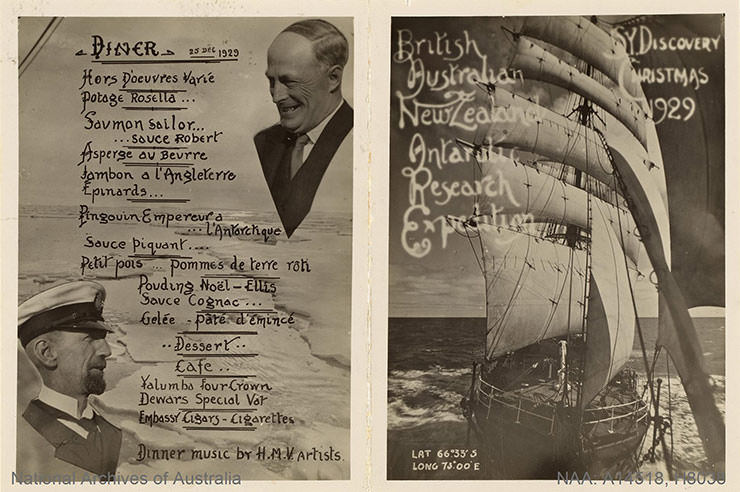 DINER 25 DEC 1929
Hors D'oeuvres Varie
Potage Rosella ...
Saumon Sailor...
...Sauce Robert
Asperge au Beurre
Jambon a l'Angleterre
Epinards...
Pingouin Empereur a
...l'Antarctique
Sauce Piquant....
Petit pois ... pommes de terre rôti
Pouding Noël-Ellis
Sauce Cognac ...
Gelée - Paté d'émincé
..Dessert..
Cafe ..
Yalumba Four Crown
Dewars Special Vat
Embassy Cigars-Cigarettes
Dinner music by H.M.V. Artists.
British
Australian
New Zealand
Antarctic
Research
Expedition
S.Y. DISCOVERY
CHRISTMAS
1929
LAT 66°33'S
LONG 73°00'E
National Archives of Australia
NAA: A14518,